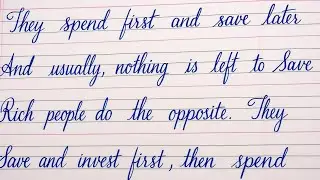 They spend first and save later
And usually, nothing is left to Save
Rich people do the opposite. They
Save and invest first, then spend